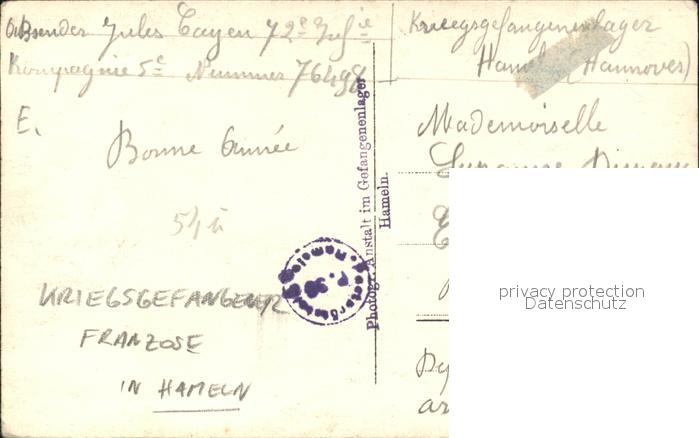 Absender Jules Cayen 72e Infie
Kompagnie 5e Nummer 76498
Kriegsgefangenenlager
Hameln (Hannover)
E.
Bonne Année
Mademoiselle
Photogr. Anstalt im Gefangenenlager
Hameln.
P. 38
KRIEGSGEFANGENER
FRANZOSE
IN HAMELN
privacy protection
Datenschutz